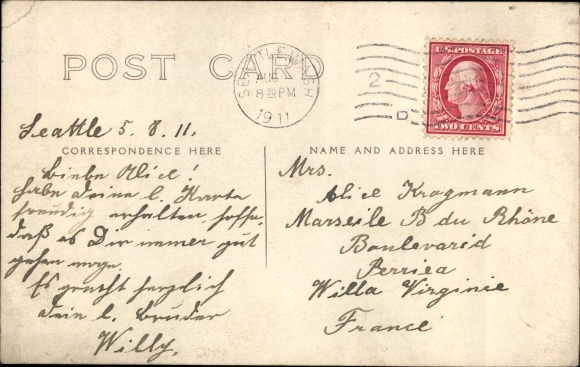 POST CARD
SEATTLE, WASH
AUG
8 30 PM
1911
2
D
U.S. POSTAGE
TWO CENTS
Seattle 5. 8. 11.
CORRESPONDENCE HERE
Liebe Alice!
habe deine l. Karte
freudig erhalten, hoffe,
daß es Dir immer gut
gehen möge.
Es grüßt herzlich
dein l. Bruder
Willy.
NAME AND ADDRESS HERE
Mrs.
Alice Kragmann
Marseile B du Rhône
Boulevarid
Perriea
Willa Virginie
France